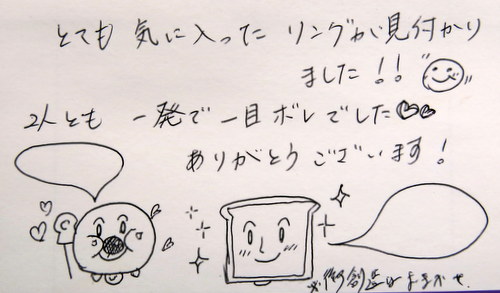 とても 気に入った リングが見付かり
ました!!
2人とも 一発で一目ボレでした
ありがとう ございます!